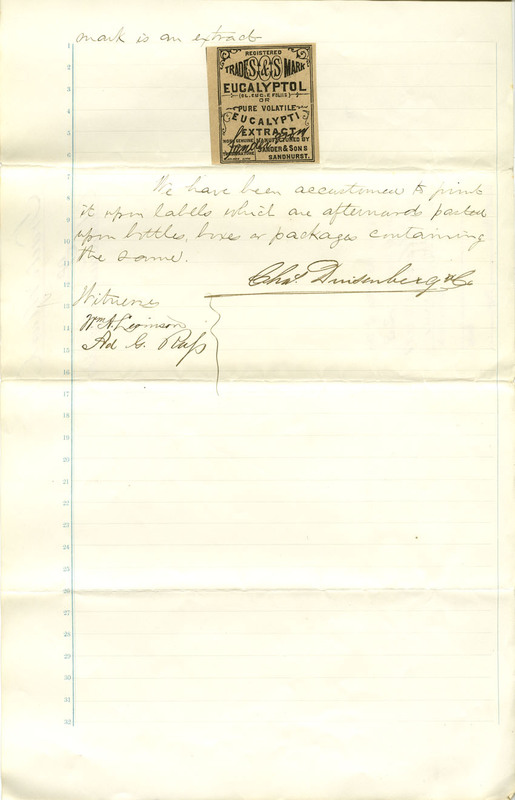 mark is an extract
REGISTERED
TRADE S&S MARK
EUCALYPTOL
(OL. EUC. E FOLIIS)
OR
PURE VOLATILE
EUCALYPTI
EXTRACT
MANUFACTURED BY
SANDER & SONS
SANDHURST.
We have been accustomed to print
it upon labels which are afterwards pasted
upon bottles, boxes or packages containing
the same.
Chas. Duisenberg & Co
Witnesses
Wm. A.
Ad. G. Raß
1
2
3
4
5
6
7
8
9
10
11
12
13
14
15
16
17
18
19
20
21
22
23
24
25
26
27
28
29
30
31
32